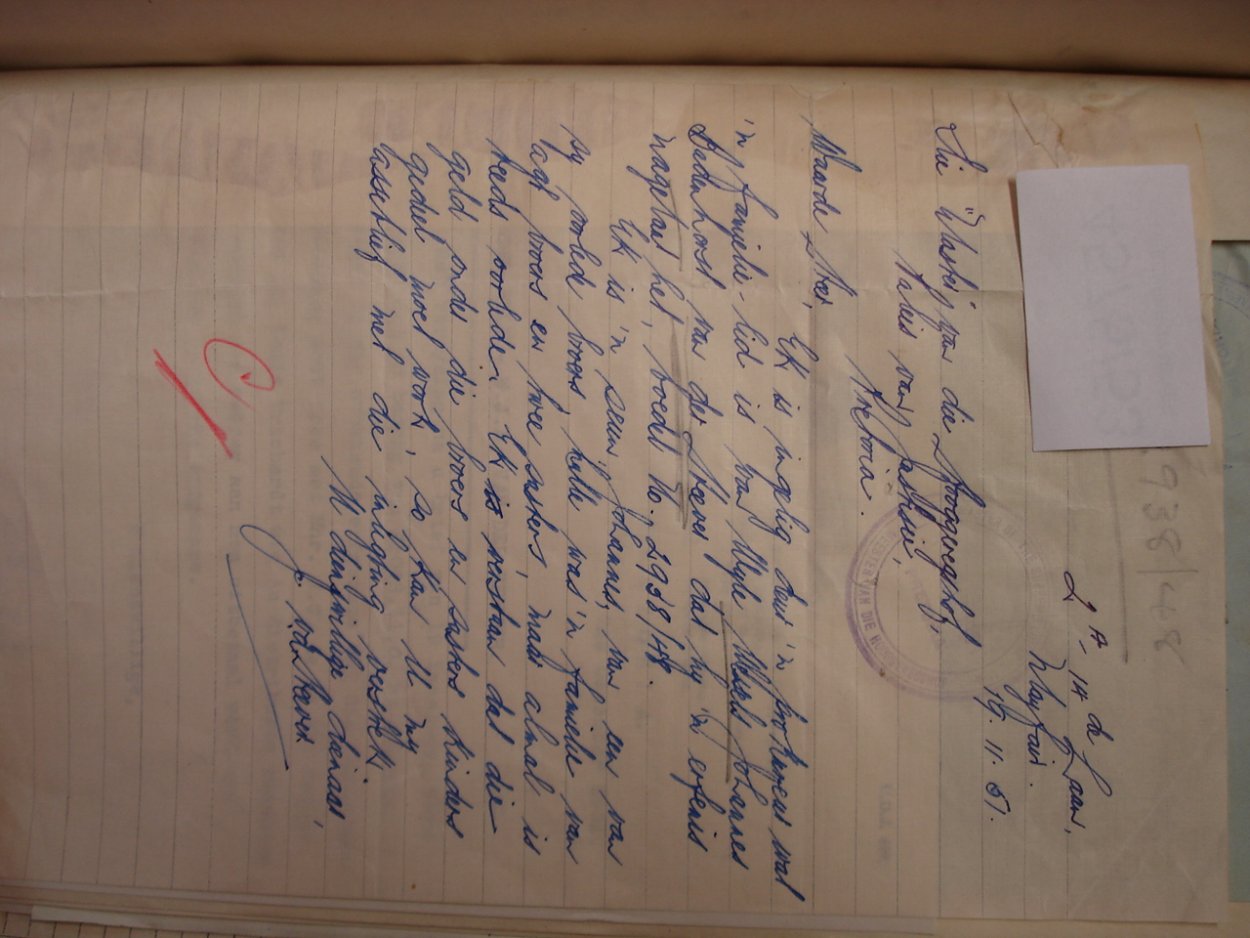 2938/48
2 A - 14 de Laan,
Mayfair.
19. 11. 51.
Die "Master" van die Hooggeregshof,
Paleis van Justisie,
Pretoria.
Waarde Heer,
Ek is ingelig deur 'n prokureur wat
'n familie-lid is van Wyle Johannes
Badenhorst van der Heever dat hy 'n erfenis
nagelaat het, boedel No. 2938/48.
Ek is 'n seun, Johannes, van een van
sy oorlede broers, hulle was 'n familie van
agt broers en twee susters, maar almal is
reeds oorlede. Ek is verstaan dat die
geld onder die broers en susters kinders
gedeel moet word, so kan U my
asseblief met die inligting verstrek.
U dienswillige dienaar,
J. vd Heever.